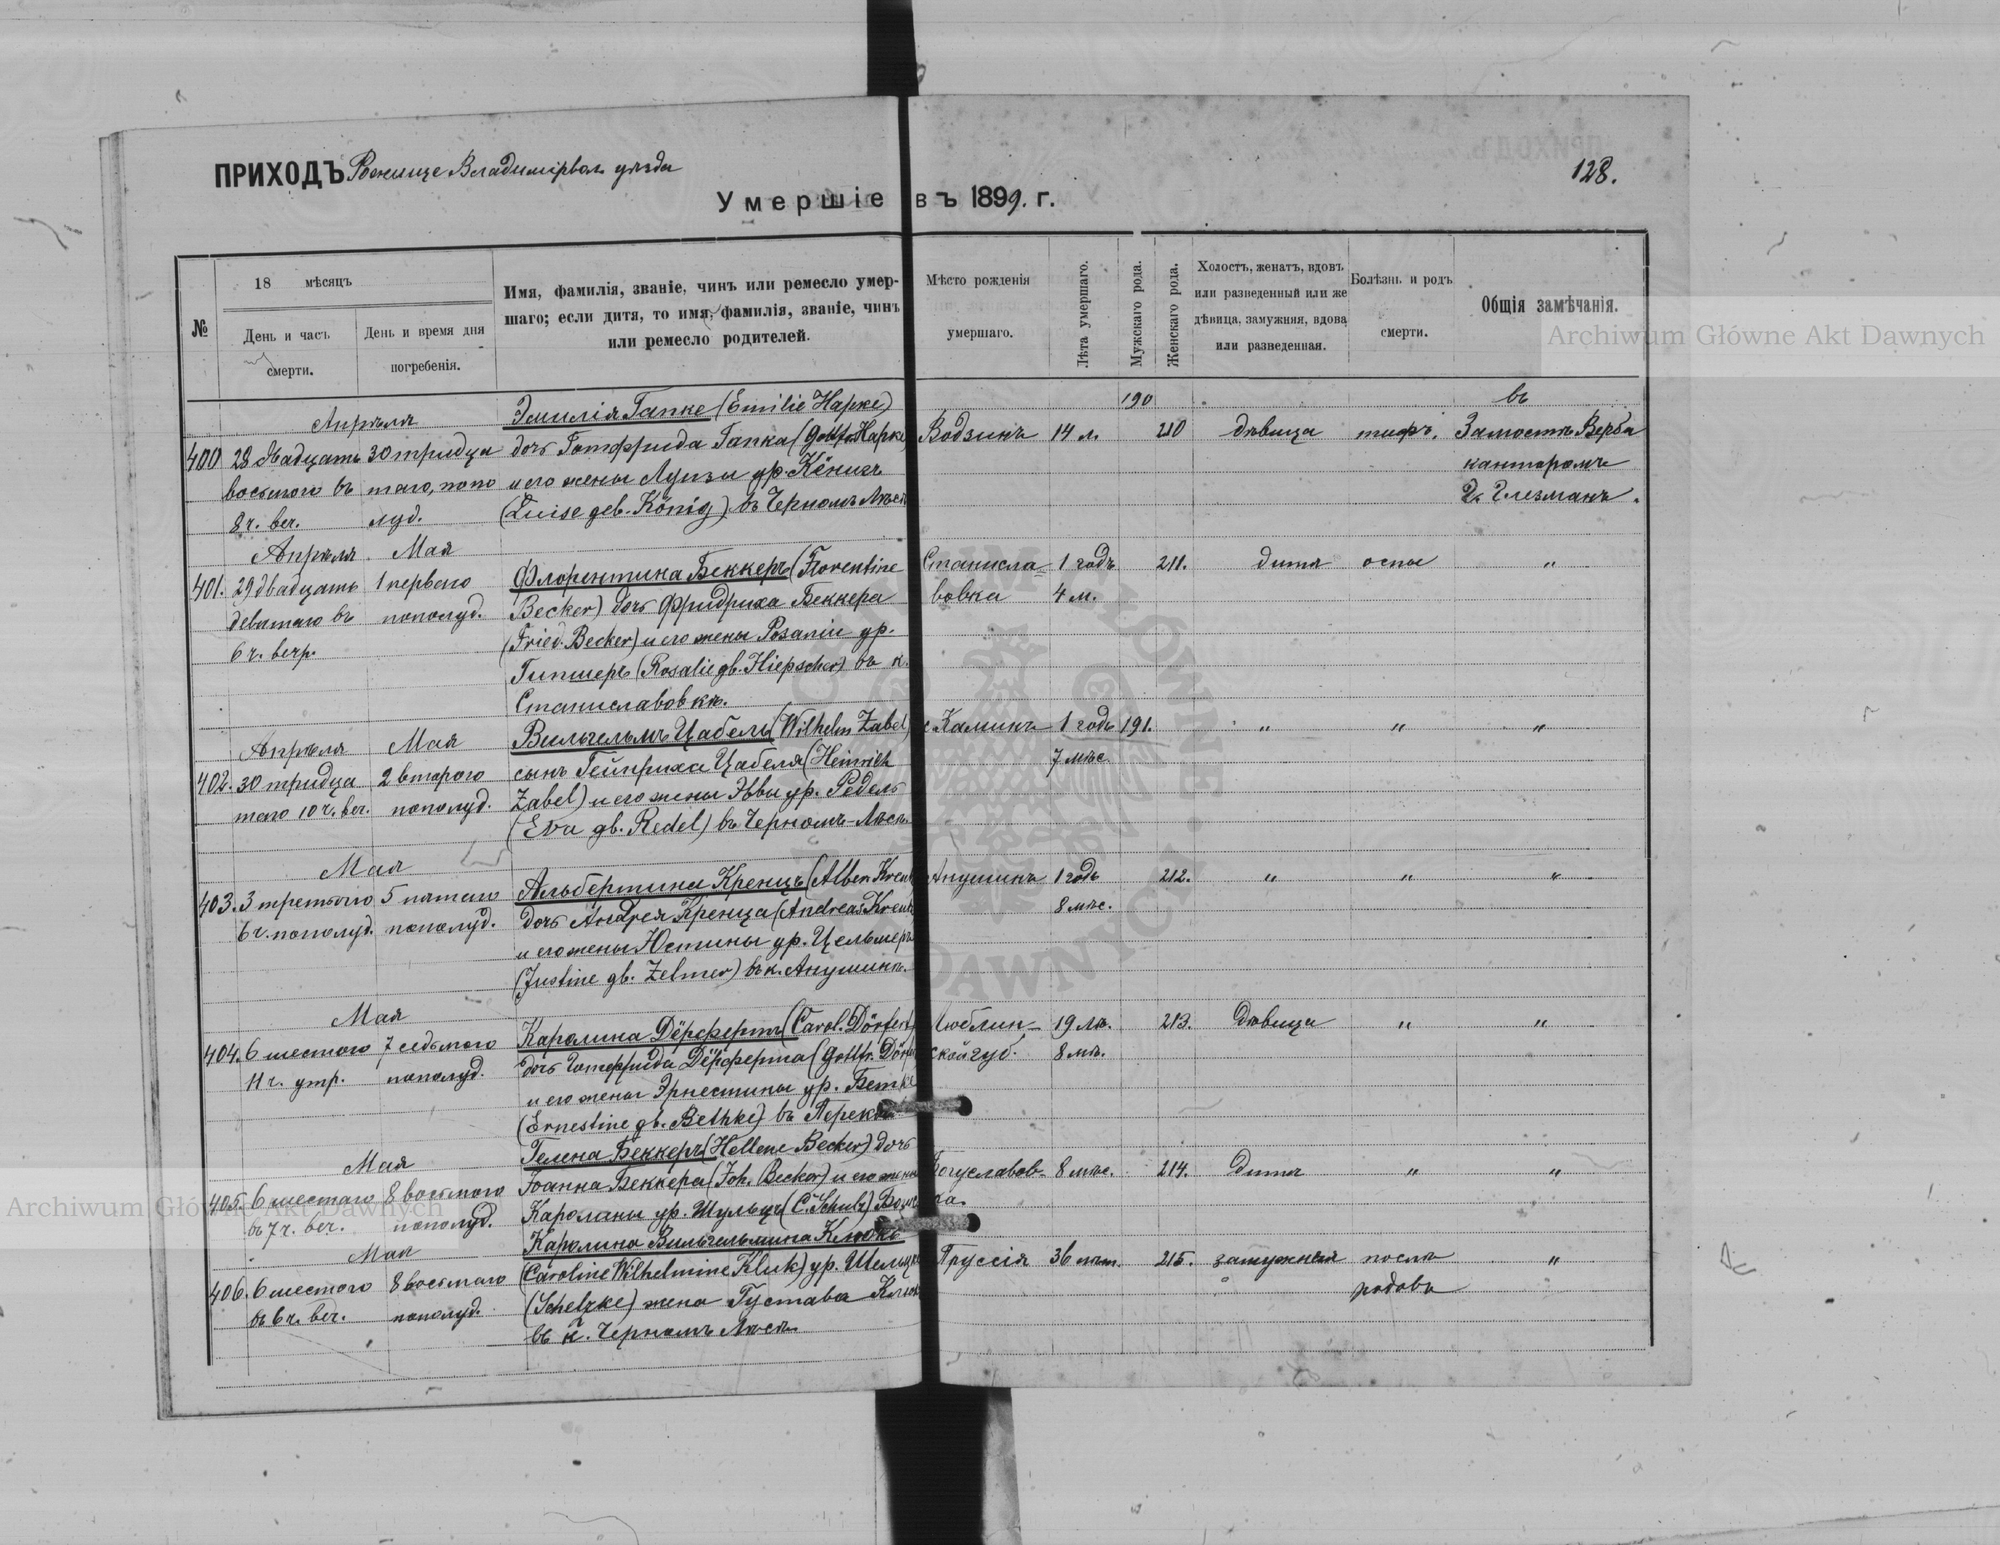 ПРИХОДЪ Рожище Владимірвол. уѣзда
128.
Умершіе въ 1899. г.
№
18 мѣсяцъ
День и часъ смерти.
День и время дня погребенія.
Имя, фамилія, званіе, чинъ или ремесло умер-
шаго; если дитя, то имя, фамилія, званіе, чинъ
или ремесло родителей.
Мѣсто рожденія
умершаго.
Лѣта умершаго.
Мужскаго рода.
Женскаго рода.
Холостъ, женатъ, вдовъ
или разведенный или же
дѣвица, замужняя, вдова
или разведенная.
Болѣзнь и родъ
смерти.
Общія замѣчанія.
Archiwum Główne Akt Dawnych
Эмилія Гапке (Emilie Hapke) 190 въ
Апрѣля
400 28 двадцать 30 тридца дочь Готфрида Гапка (Gottfr. Hapke) 14 л. 210 дѣвица тифъ. Замостъѣ Верба
восьмого въ таго, попо и его жены Луизы ур. Кёнигъ канторомъ
8 ч. веч. луд. (Luise geb. König) въ Черномъ Лѣсѣ
Апрѣля Мая
401. 29 двадцать 1 первого Флорентина Беккеръ (Florentine Станисла- 1 годъ 211. дитя оспы "
девятаго въ пополуд. Becker) дочь Фридриха Беккера вовка 4 м.
6 ч. веч. (Fried. Becker) и его жены Розаліи ур.
Гипшеръ (Rosalie gb. Hiepscher) въ к.
Станиславовкѣ.
Апрѣля Мая Вильгельмъ Цабель (Wilhelm Zabel) 1 годъ 191. " " "
402. 30 тридца 2 второго сынъ Гейнриха Цабеля (Heinrich 7 мѣс.
таго 10 ч. веч. пополуд. Zabel) и его жены Эввы ур. Редель
(Eva gb. Redel) въ Черномъ-Лѣсѣ
Мая
403. 3 третьего 5 пятаго Альбертина Кренцъ 1 годъ 212. " " "
6 ч. пополуд. пополуд. дочь Андрея Кренца (Andreas Krenz 8 мѣс.
и его жены Юстины ур. Цельмеръ
(Justine gb. Zelmer) въ к. Анушинъ.
Мая
404. 6 шестого 7 седьмого Каролина Дёрфертъ (Carol. Dörfert) Люблин- 19 лѣ. 213. Дѣвица " "
11 ч. утр. пополуд. дочь Готфрида Дёрферта (Gottfr. ской губ. 8 мѣ.
и его жены Эрнестины ур. Бетке
(Ernestine gb. Bethke) въ
Мая Гелена Беккеръ (Hellene Becker) дочь
405. 6 шестаго 8 восьмого Іоанна Беккера (Joh. Becker) и его жены Богуславов- 8 мѣс. 214. дитя " "
въ 7 ч. веч. пополуд. Каролины ур. Шульцъ (C. Schulz) ка.
Мая Каролина Вильгельмина Клюкъ
406. 6 шестого 8 восьмаго (Caroline Wilhelmine Kluk) ур. Шельцке Пруссія 36 лѣт. 215. замужняя послѣ "
въ 6 ч. веч. пополуд. (Schelzke) жена Густава Клюкъ родовъ
въ к. Черномъ Лѣсѣ.
Archiwum Główne Akt Dawnych